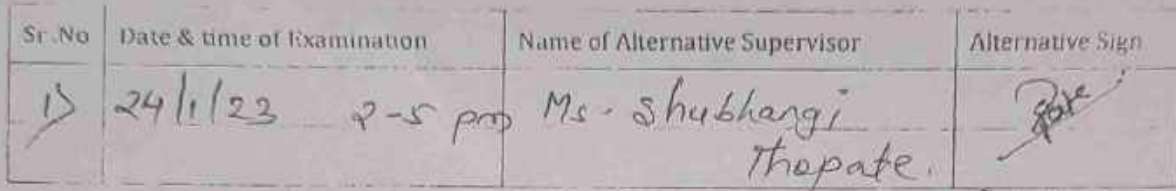 Sr.No Date & time of Examination Name of Alternative Supervisor Alternative Sign
1) 24/1/23 2-5 pm Ms. Shubhangi
Thopate.